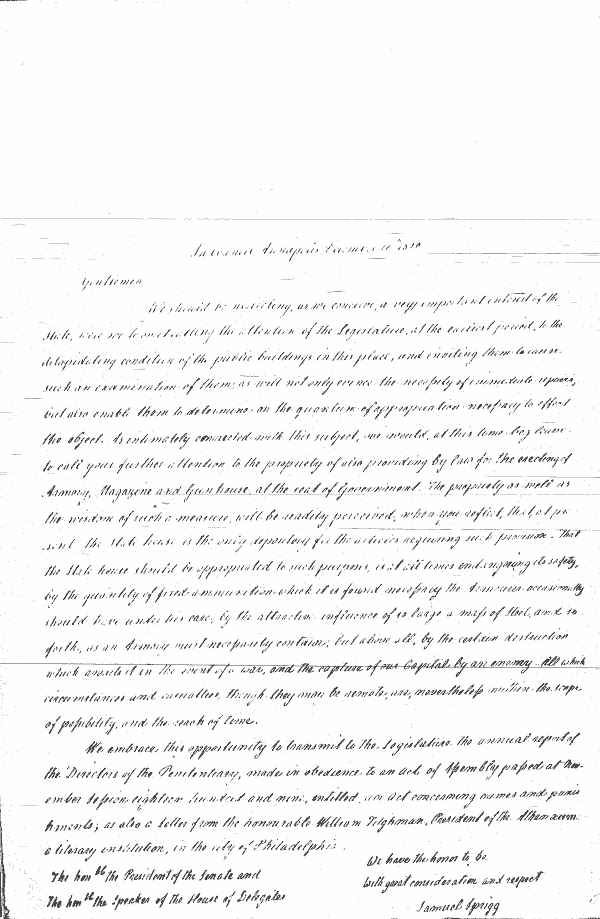 In Council Annapolis December 10th 1820
Gentlemen
We should be neglecting, as we conceive, a very important interest of the
State, were we to omit calling the attention of the Legislature, at the earliest period, to the
delapidating condition of the public buildings in this place, and inviting them to cause
such an examination of them as will not only evince the necessity of immediate repairs,
but also enable them to determine on the quantum of appropriation necessary to effect
the object. As intimately connected with this subject, we would, at this time beg leave
to call your further attention to the propriety of also providing by law for the erecting of
Armory, Magazine and Gun house, at the seat of Government. The propriety as well as
the wisdom of such a measure, will be readily perceived, when you reflect, that, at pre
sent the State house is the only depository for the articles requiring such provision. That
the State house should be appropriated to such purposes, is at all times endangering its safety,
by the quantity of fixed ammunition which it is found necessary the Armourer occasionally
should have under his care, by the attractive influence of so large a mass of Steel, and so
forth, as an Armory must necessarily contain; but above all, by the certain destruction
which awaits it in the event of a war, and the capture of our Capital by an enemy - All which
circumstances and casualties, though they may be remote, are, nevertheless within the scope
of possibility, and the reach of time.
We embrace this opportunity to transmit to the Legislature the annual report of
the Directors of the Penitentiary, made in obedience to an act of Assembly passed at Nov-
ember Session eighteen hundred and nine, entitled, an act concerning crimes and punis
hments; as also a letter from the honourable William Tilghman, President of the Athenaeum
a literary institution, in the city of Philadelphia.
We have the honor to be
The honble the President of the Senate and
with great consideration and respect
The honble the Speaker of the House of Delegates
Samuel Sprigg